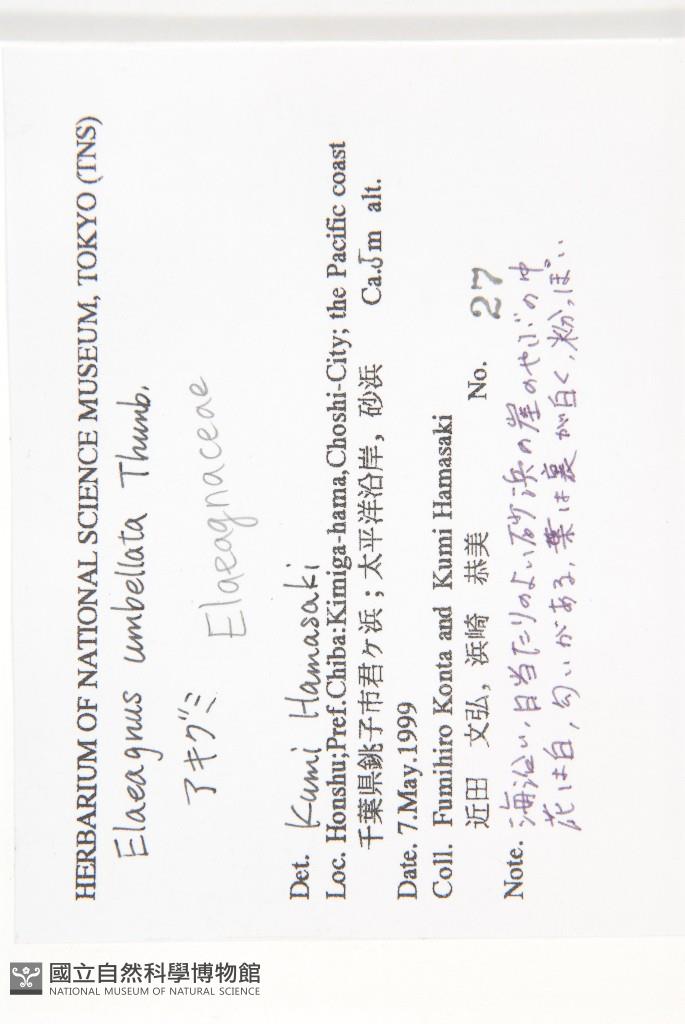 HERBARIUM OF NATIONAL SCIENCE MUSEUM, TOKYO (TNS)
Elaeagnus umbellata Thunb.
アキグミ
Elaeagnaceae
Det. Kumi Hamasaki
Loc. Honshu;Pref.Chiba:Kimiga-hama,Choshi-City; the Pacific coast
千葉県銚子市君ヶ浜；太平洋沿岸，砂浜 Ca.5m alt.
Date. 7.May.1999
Coll. Fumihiro Konta and Kumi Hamasaki
近田 文弘，浜崎 恭美 No. 27
Note. 海沿い，日当たりのよい砂浜の崖のやぶの中
花は白，匂いがある，葉は裏が白く，粉っぽい
國立自然科學博物館
NATIONAL MUSEUM OF NATURAL SCIENCE